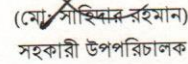 (মোঃ সাহিদার রহমান)
সহকারী উপপরিচালক